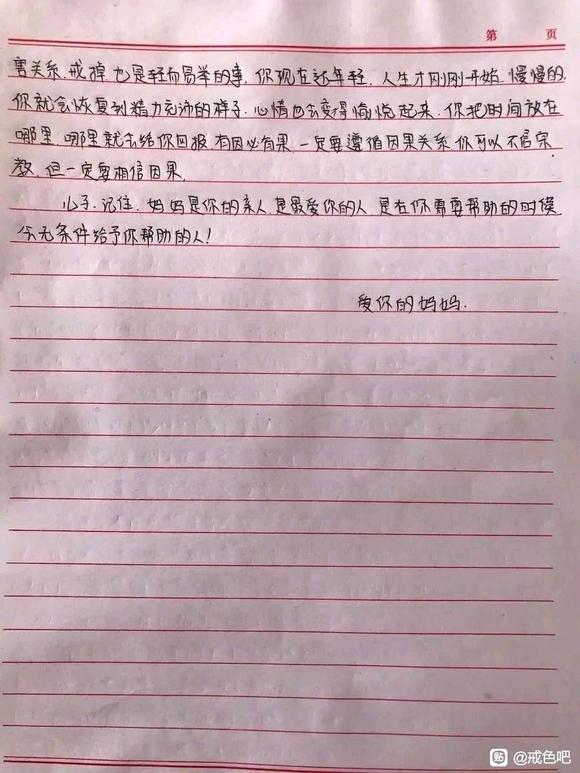 第 页
害关系,戒掉也是轻而易举的事,你现在还年轻,人生才刚刚开始,慢慢的,
你就会恢复到精力充沛的样子,心情也会变得愉悦起来,你把时间放在
哪里,哪里就会给你回报,有因必有果,一定要遵循因果关系,你可以不信宗
教,但一定要相信因果,
儿子,记住,妈妈是你的亲人,是最爱你的人,是在你需要帮助的时候
会无条件给予你帮助的人!
爱你的妈妈.
贴 @戒色吧